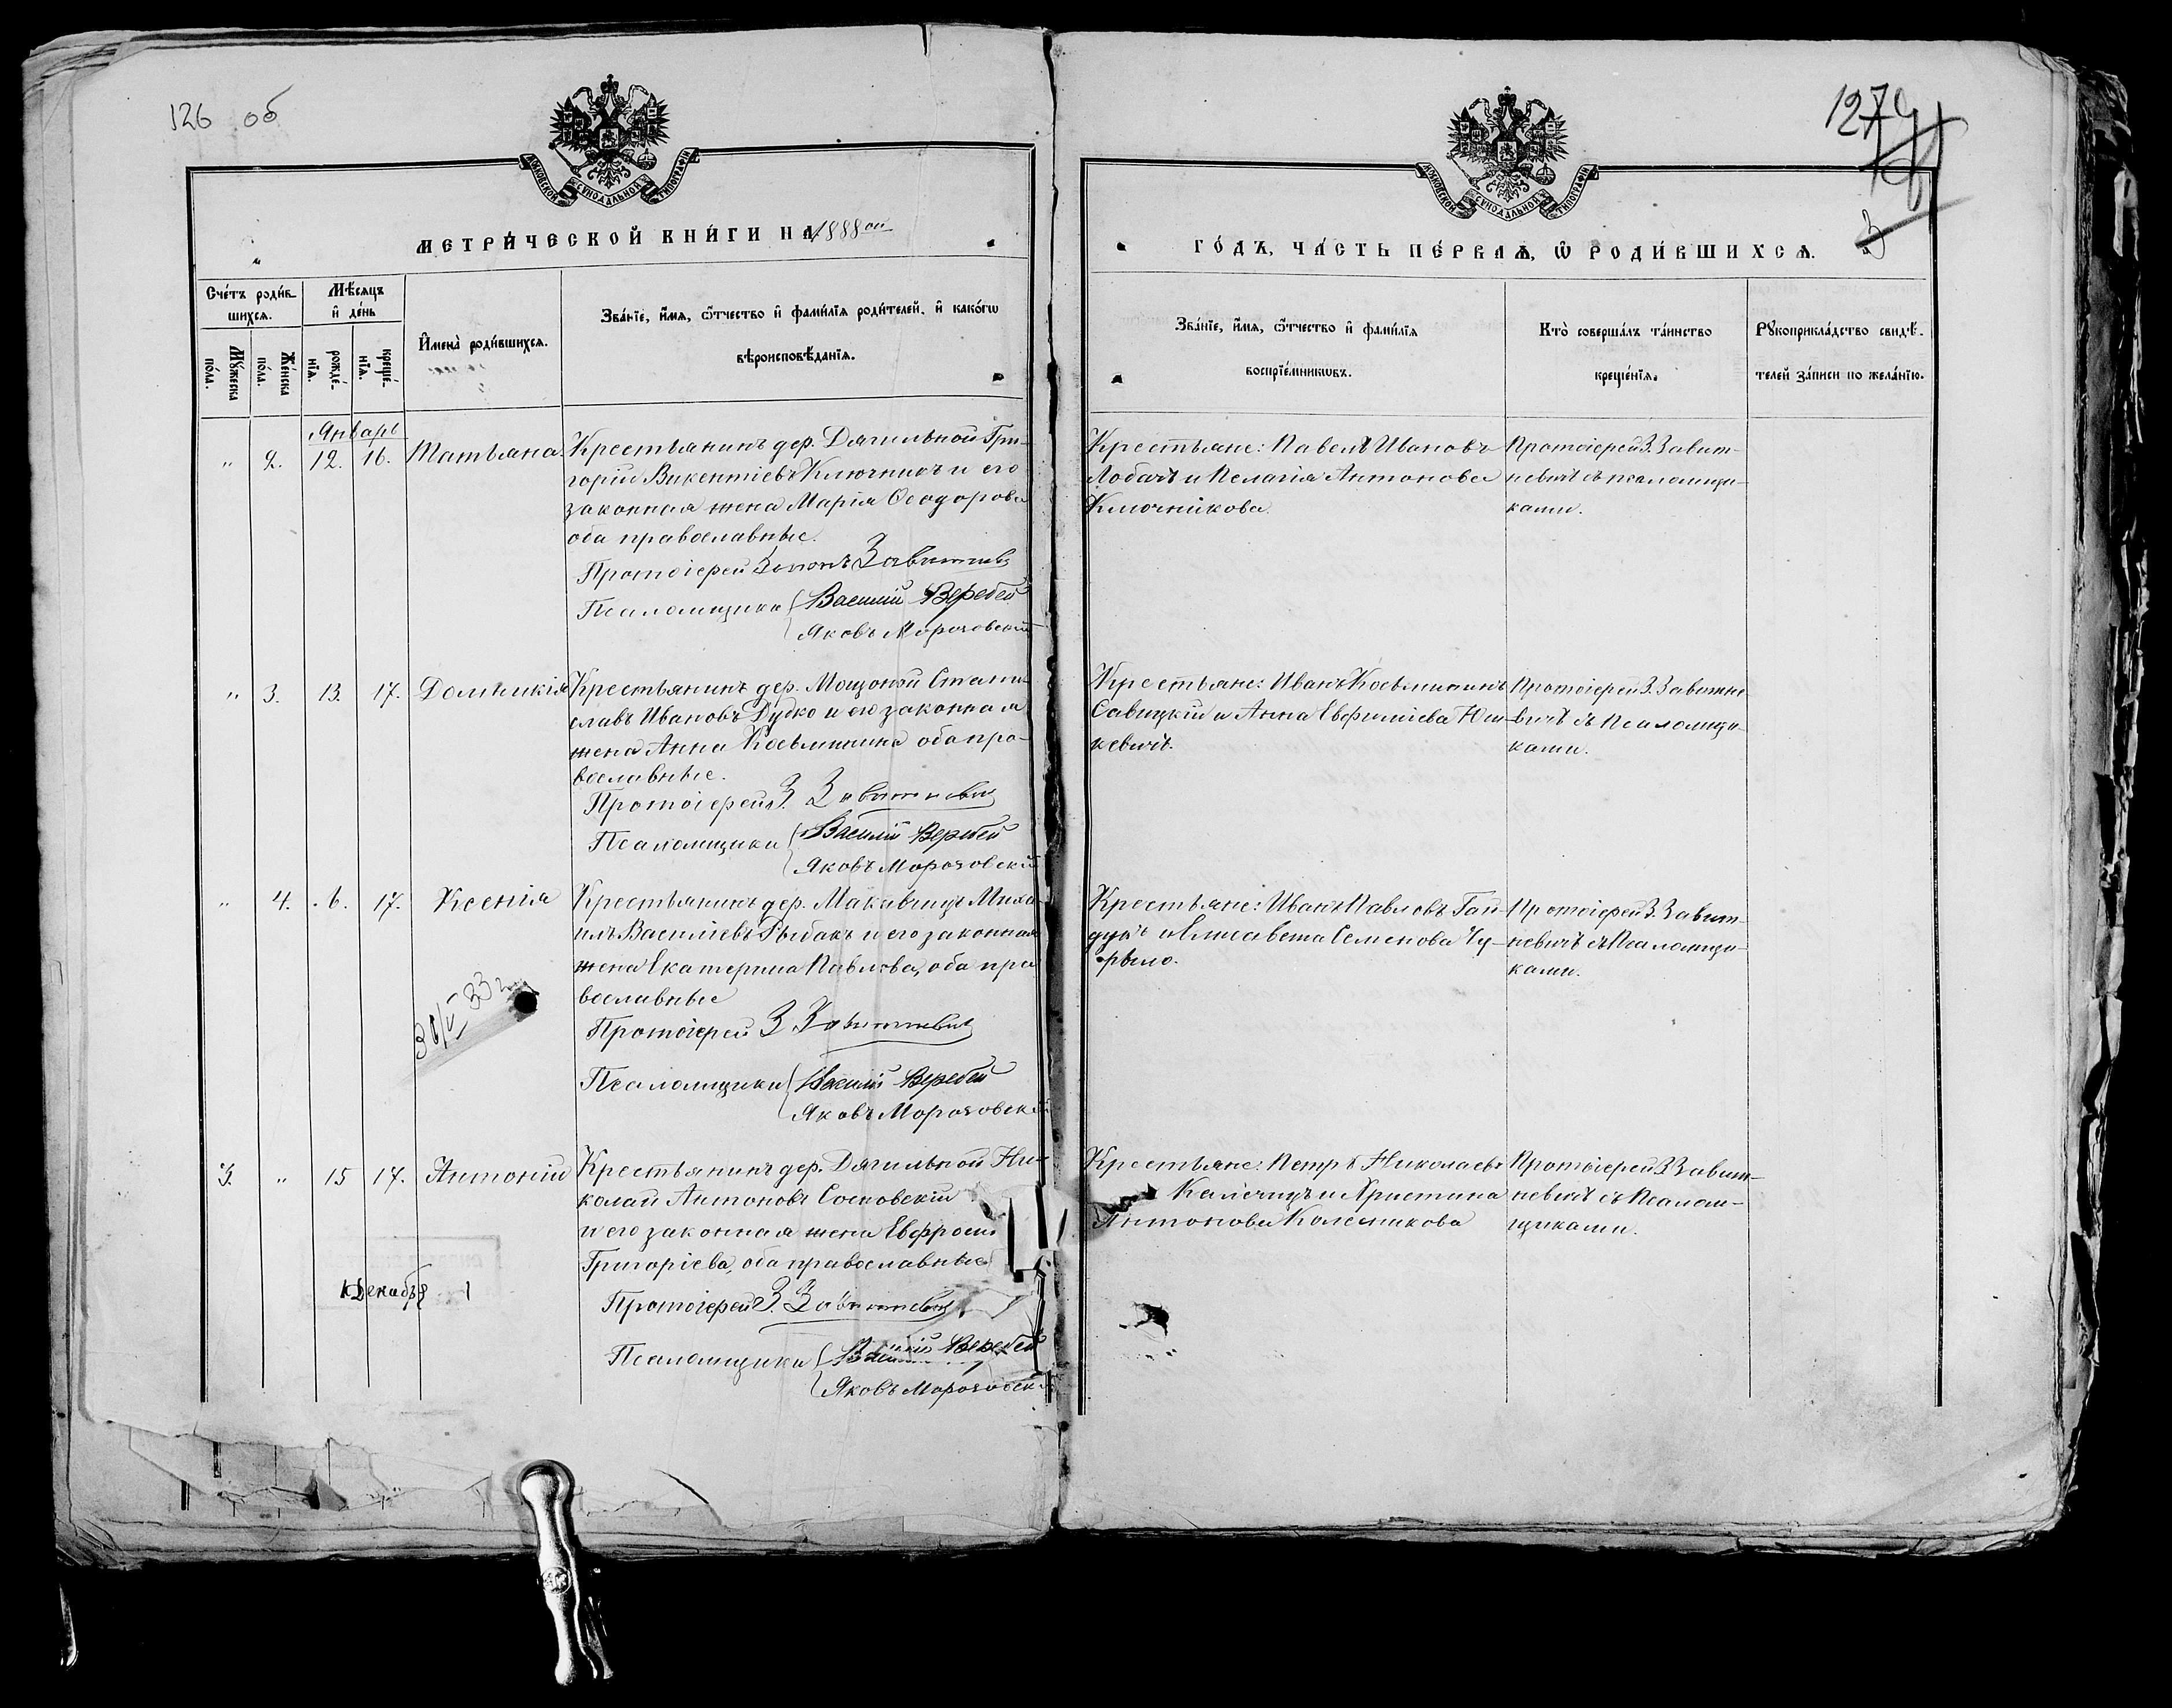 126 об
127
МОСКОВСКОЙ СѴНОДАЛЬНОЙ ТИПОГРАФІИ
МОСКОВСКОЙ СѴНОДАЛЬНОЙ ТИПОГРАФІИ
МЕТРИ́ЧЕСКОЙ КНИ́ГИ НА 1888ой
ГО́ДЪ, ЧА́СТЬ ПЕ́РВАѦ, Ѽ РОДИ́ВШИХСѦ.
Сче́тъ роди́вшихсѧ.
Мꙋ́жеска по́ла.
Же́нска по́ла.
Мѣ́сѧцъ и҆ де́нь
рожде́нїѧ.
креще́нїѧ.
И҆мена̀ роди́вшихсѧ.
Зва́нїе, и҆́мѧ, ѻ҆́тчество и҆ фами́лїѧ роди́телей, и҆ како́гѡ
вѣроисповѣ́данїѧ.
Зва́нїе, и҆́мѧ, ѻ҆́тчество и҆ фами́лїѧ
воспрїе́мникѡвъ.
Кто̀ соверша́лъ та́инство
креще́нїѧ.
Рꙋкоприкла́дство свидѣ́-
телей за́писи по жела́нїю.
Январь
„ 2. 12. 16. Татьяна
Крестьянинъ дер. Дягильной Гри-
горій Викентіевъ Ключникъ и его
законная жена Марія Ѳеодорова
оба православные.
Протоіерей Зинонъ Завитнев
Псаломщики Василій Веребей
Яковъ Морозовскій
Крестьяне: Павелъ Ивановъ
Лобачъ и Пелагія Антонова
Ключникова.
Протоіерей З. Завит-
невичъ съ псаломщи-
ками.
„ 3. 13. 17. Домникія
Крестьянинъ дер. Мощоной Стани-
славъ Ивановъ Дудко и его законная
жена Анна Косьминина оба пра-
вославные.
Протоіерей З. Завитневич
Псаломщики Василій Веребей
Яковъ Морозовскій
Крестьяне: Иванъ Косьмининъ
Савицкій и Анна Евфиміева Юш-
кевичъ.
Протоіерей З. Завитне-
вичъ съ Псаломщи-
ками.
„ 4. 6. 17. Ксенія
Крестьянинъ дер. Макавчицъ Миха-
илъ Василіевъ Рыбакъ и его законная
жена Екатерина Павлова, оба пра
вославные
Протоіерей З Завитневич
Псаломщики Василій Веребей
Яковъ Морозовскій
Крестьяне: Иванъ Павловъ Гай-
дукъ и Елисавета Семенова Чу-
рыло.
Протоіерей З. Завит-
невичъ съ Псаломщи-
ками.
3. „ 15 17. Антоній
Крестьянинъ дер. Дягильной Ни-
колай Антоновъ Сосновскій
и его законная жена Евфросин
Григоріева, оба православные
Протоіерей З. Завитневич
Псаломщики Василій Веребей
Яковъ Морозовскій
Крестьяне: Петръ Николаевъ
и Христина
Антонова Колесникова
Протоіерей З Завит-
невичъ съ Псалом-
щиками.
Декабря 1